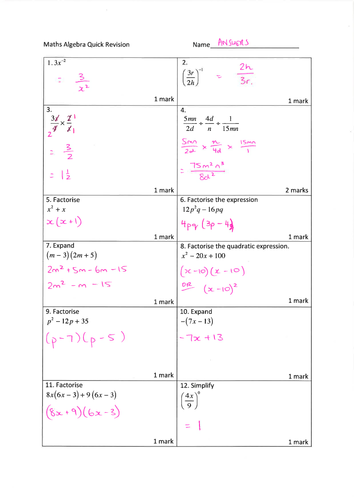 Maths Algebra Quick Revision Name ANSWERS
1. 3x⁻²
= 3/x²
1 mark
2.
(3r/2h)⁻¹ = 2h/3r
1 mark
3.
= 3/2
= 1 1/2
1 mark
4.
5mn/2d ÷ 4d/n ÷ 1/15mn
5mn/2d × n/4d × 15mn/1
= 75m²n³/8d²
2 marks
5. Factorise
x² + x
x(x+1)
1 mark
6. Factorise the expression
12p²q − 16pq
4pq (3p − 4)
1 mark
7. Expand
(m − 3)(2m + 5)
2m² + 5m − 6m − 15
2m² − m − 15
1 mark
8. Factorise the quadratic expression.
x² − 20x + 100
(x − 10)(x − 10)
OR (x − 10)²
1 mark
9. Factorise
p² − 12p + 35
(p − 7)(p − 5)
1 mark
10. Expand
−(7x − 13)
−7x + 13
1 mark
11. Factorise
8x(6x − 3) + 9(6x − 3)
(8x + 9)(6x − 3)
1 mark
12. Simplify
(4x/9)⁰
= 1
1 mark